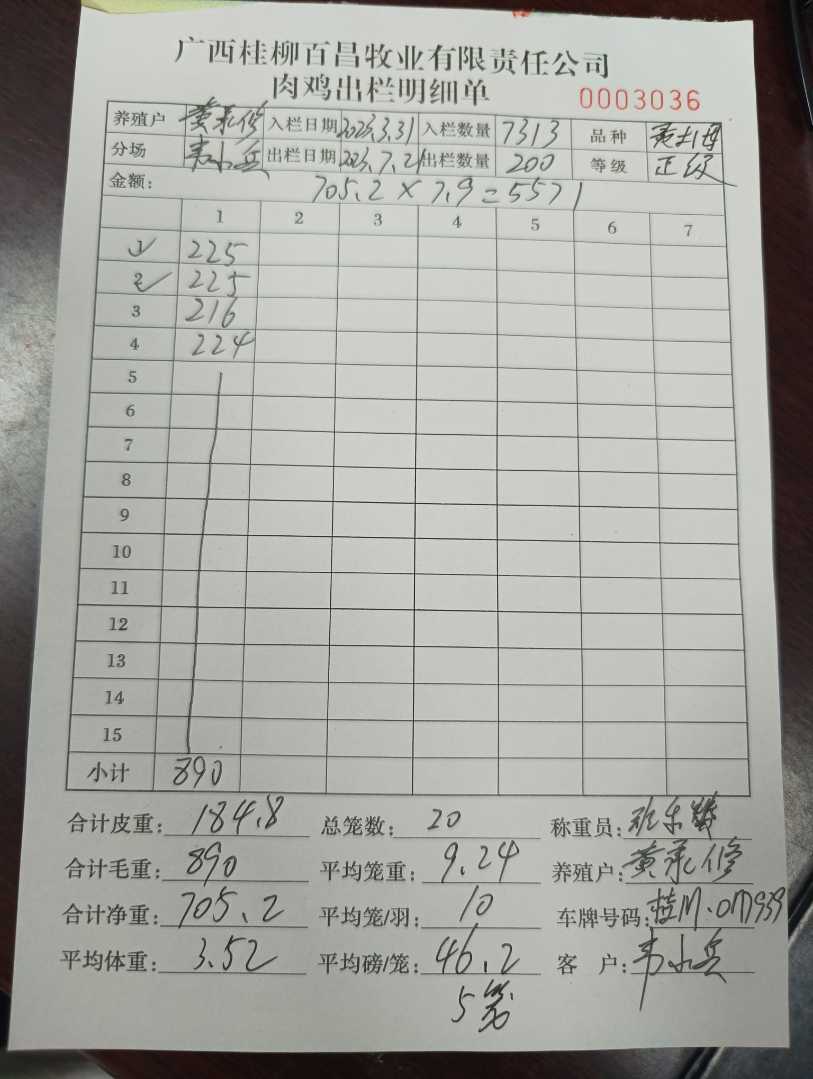 广西桂柳百昌牧业有限责任公司
肉鸡出栏明细单 0003036
养殖户 黄承修 入栏日期 2023.3.31 入栏数量 7313 品种
分场 韦小兵 出栏日期 2023.7.21 出栏数量 200 等级 正级
金额: 705.2×7.9=5571
1 2 3 4 5 6 7
1 225
2 225
3 216
4 224
5
6
7
8
9
10
11
12
13
14
15
小计 890
合计皮重: 184.8 总笼数: 20 称重员:
合计毛重: 890 平均笼重: 9.24 养殖户: 黄承修
合计净重: 705.2 平均笼/羽: 10 车牌号码:
平均体重: 3.52 平均磅/笼: 46.2 客户: 韦小兵
5笼